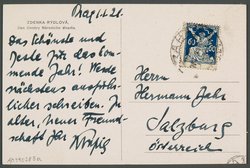 ZDENKA RYDLOVÁ,
Prag 1.1.21.
Das Schönste und
Beste für das kom-
mende Jahr! Werde
nächstens ausführ-
licher schreiben. In
alter, neuer Freund-
schaft Ihr
Herrn
Hermann Bahr
Salzburg
Österreich